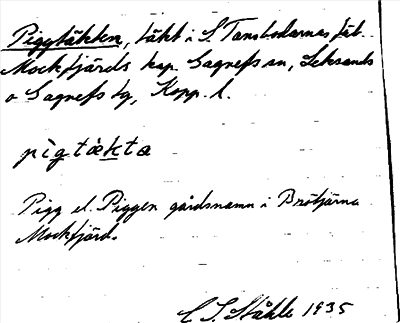 Piggtäkten, täkt i S Tansbodarnas fäb.
Mockfjärds kap. Gagnefs sn, Leksands
o Gagnefs tg, Kopp. l.
pìgtäkta
Pigg el. Piggen gårdsnamn i Brötjärna
Mockfjärd.
C S. Ståhle 1935